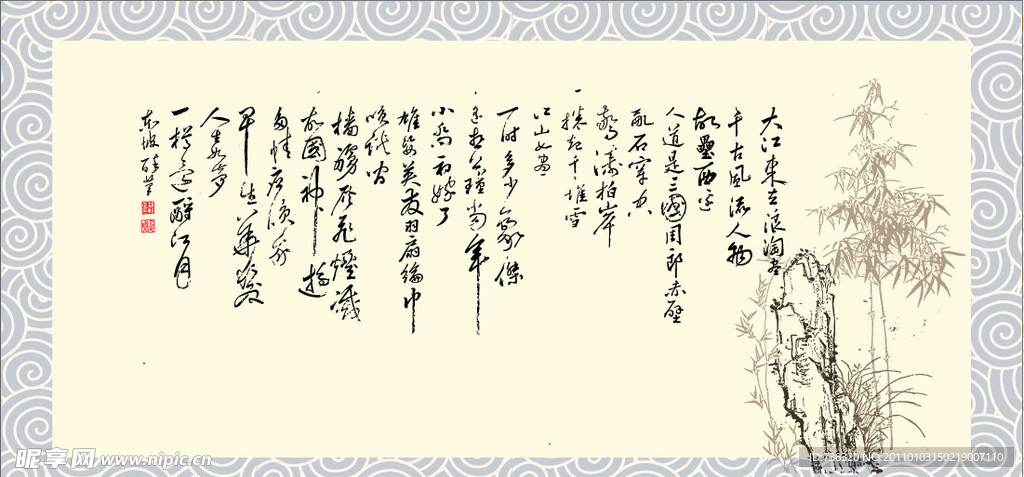 大江東去浪淘盡
千古風流人物
故壘西邊
人道是三國周郎赤壁
亂石穿空
驚濤拍岸
捲起千堆雪
江山如畫
一時多少豪傑
遙想公瑾當年
小喬初嫁了
雄姿英發羽扇綸巾
談笑間
檣櫓灰飛煙滅
故國神遊
多情應笑我
早生華髮
人生如夢
一樽還酹江月
東坡醉筆
昵享网 www.nipic.cn
ID:738320 NO:20110103150219007110